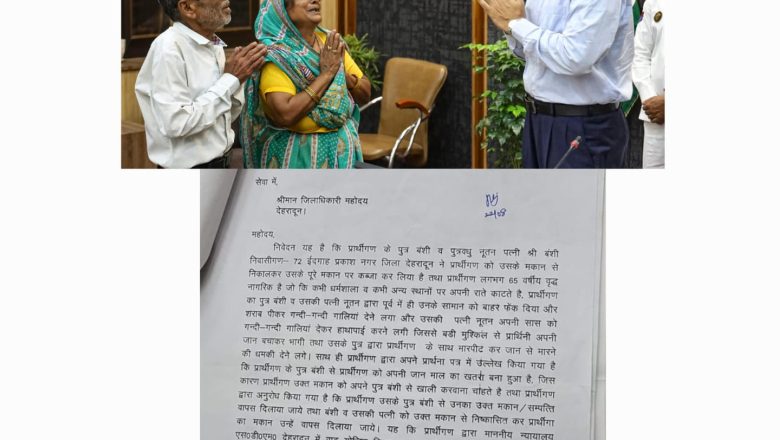 सेवा में,
श्रीमान जिलाधिकारी महोदय
देहरादून।
22/08
महोदय,
निवेदन यह है कि प्रार्थीगण के पुत्र बंशी व पुत्रवधु नूतन पत्नी श्री बंशी
निवासीगण– 72 ईदगाह प्रकाश नगर जिला देहरादून ने प्रार्थीगण को उसके मकान से
निकालकर उसके पूरे मकान पर कब्जा कर लिया है तथा प्रार्थीगण लगभग 65 वर्षीय वृद्ध
नागरिक है जो कि कभी धर्मशाला व कभी अन्य स्थानों पर अपनी राते काटते है, प्रार्थीगण
का पुत्र बंशी व उसकी पत्नी नूतन द्वारा पूर्व में ही उनके सामान को बाहर फेंक दिया और
शराब पीकर गन्दी–गन्दी गालियां देने लगा और उसकी पत्नी नूतन अपनी सास को
गन्दी–गन्दी गालियां देकर हाथापाई करने लगी जिससे बडी मुश्किल से प्रार्थिनी अपनी
जान बचाकर भागी तथा उसके पुत्र द्वारा प्रार्थीगण के साथ मारपीट कर जान से मारने
की धमकी देने लगे। साथ ही प्रार्थीगण द्वारा अपने प्रार्थना पत्र में उल्लेख किया गया है
कि प्रार्थीगण के पुत्र बंशी से प्रार्थीगण को अपनी जान माल का खतरा बना हुआ है, जिस
कारण प्रार्थीगण उक्त मकान को अपने पुत्र बंशी से खाली करवाना चांहते है तथा प्रार्थीगण
द्वारा अनुरोध किया गया है कि प्रार्थीगण उसके पुत्र बंशी से उनका उक्त मकान/सम्पत्ति
वापस दिलाया जाये तथा बंशी व उसकी पत्नी को उक्त मकान से निष्कासित कर प्रार्थीगा
का मकान उन्हें वापस दिलाया जाये। यह कि प्रार्थीगण द्वारा माननीय न्यायालय
एस०डी०एम० देहरादून में वाद